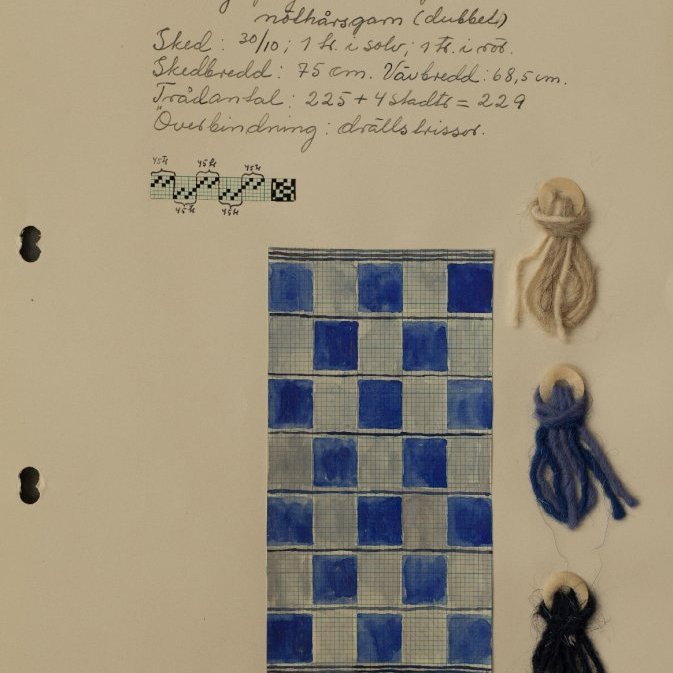 nöthårsgarn (dubbelt)
Sked: 30/10; 1 tr. i solv; 1 tr. i rör.
Skedbredd: 75 cm. Vävbredd: 68,5 cm.
Trådantal: 225 + 4 stadtr = 229
Överbindning: drällstrissor.
45 tr 45 tr 45 tr
45 tr 45 tr